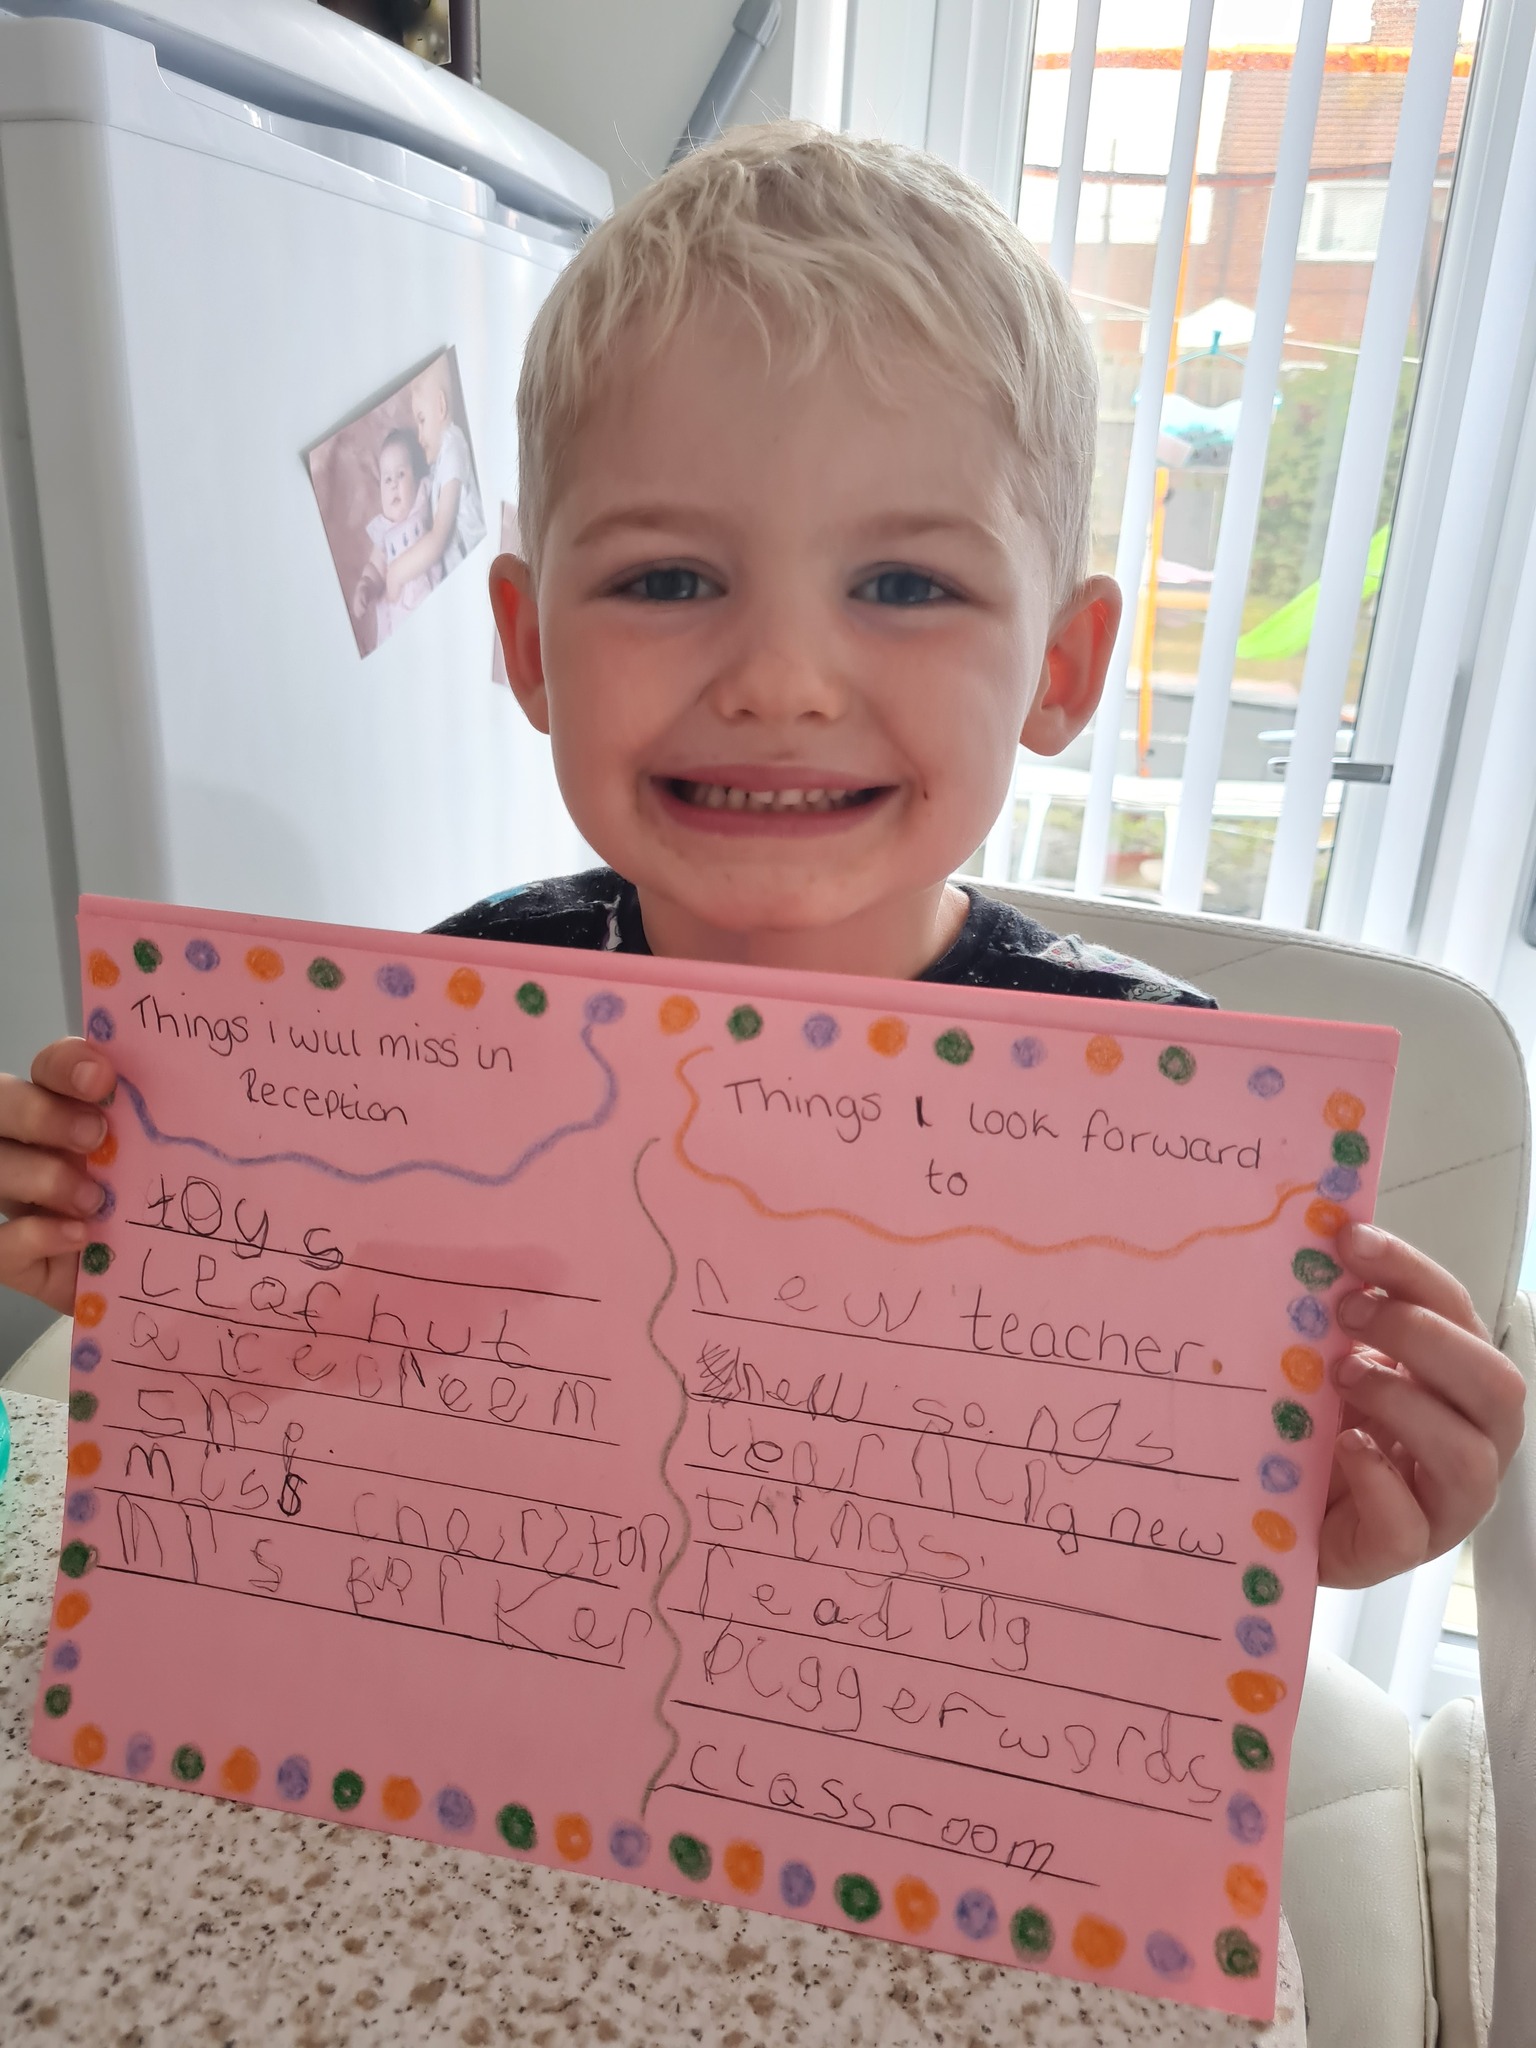 Things i will miss in
Reception
toys
Leaf hut
a icecreem
shp.
miss cherizton
mrs barker
Things I look forward
to
new teacher.
new songs
learning new
things.
reading
bigger words
classroom